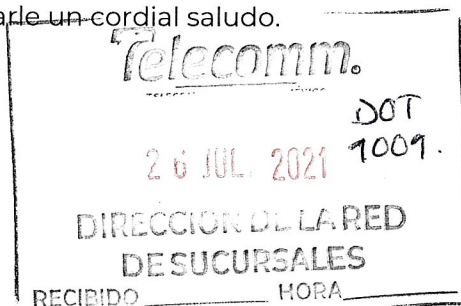 arle un cordial saludo.
Telecomm.
DOT
1009.
26 JUL. 2021
DIRECCION DE LA RED
DE SUCURSALES
RECIBIDO HORA